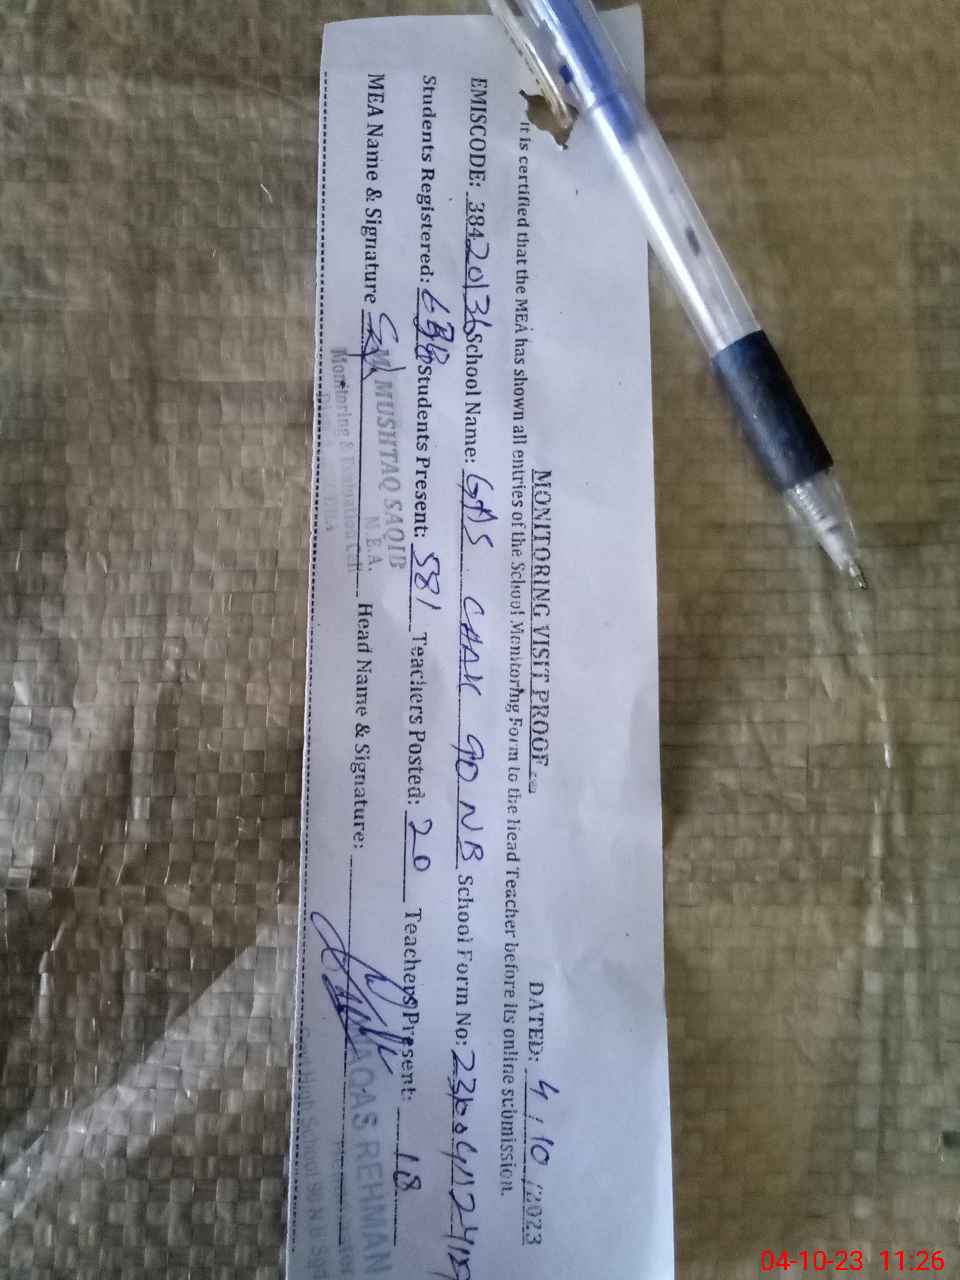 MONITORING VISIT PROOF DATED: 4/10/2023
It is certified that the MEA has shown all entries of the School Monitoring Form to the Head Teacher before its online submission.
EMISCODE: 38420136 School Name: GHS CHAK 90 NB School Form No:
Students Registered: Students Present: 581 Teachers Posted: 20 Teachers Present: 18
MEA Name & Signature Head Name & Signature:
MUSHTAQ SAQIB
M.E.A.
Monitoring &
REHMAN
High School
04-10-23 11:26